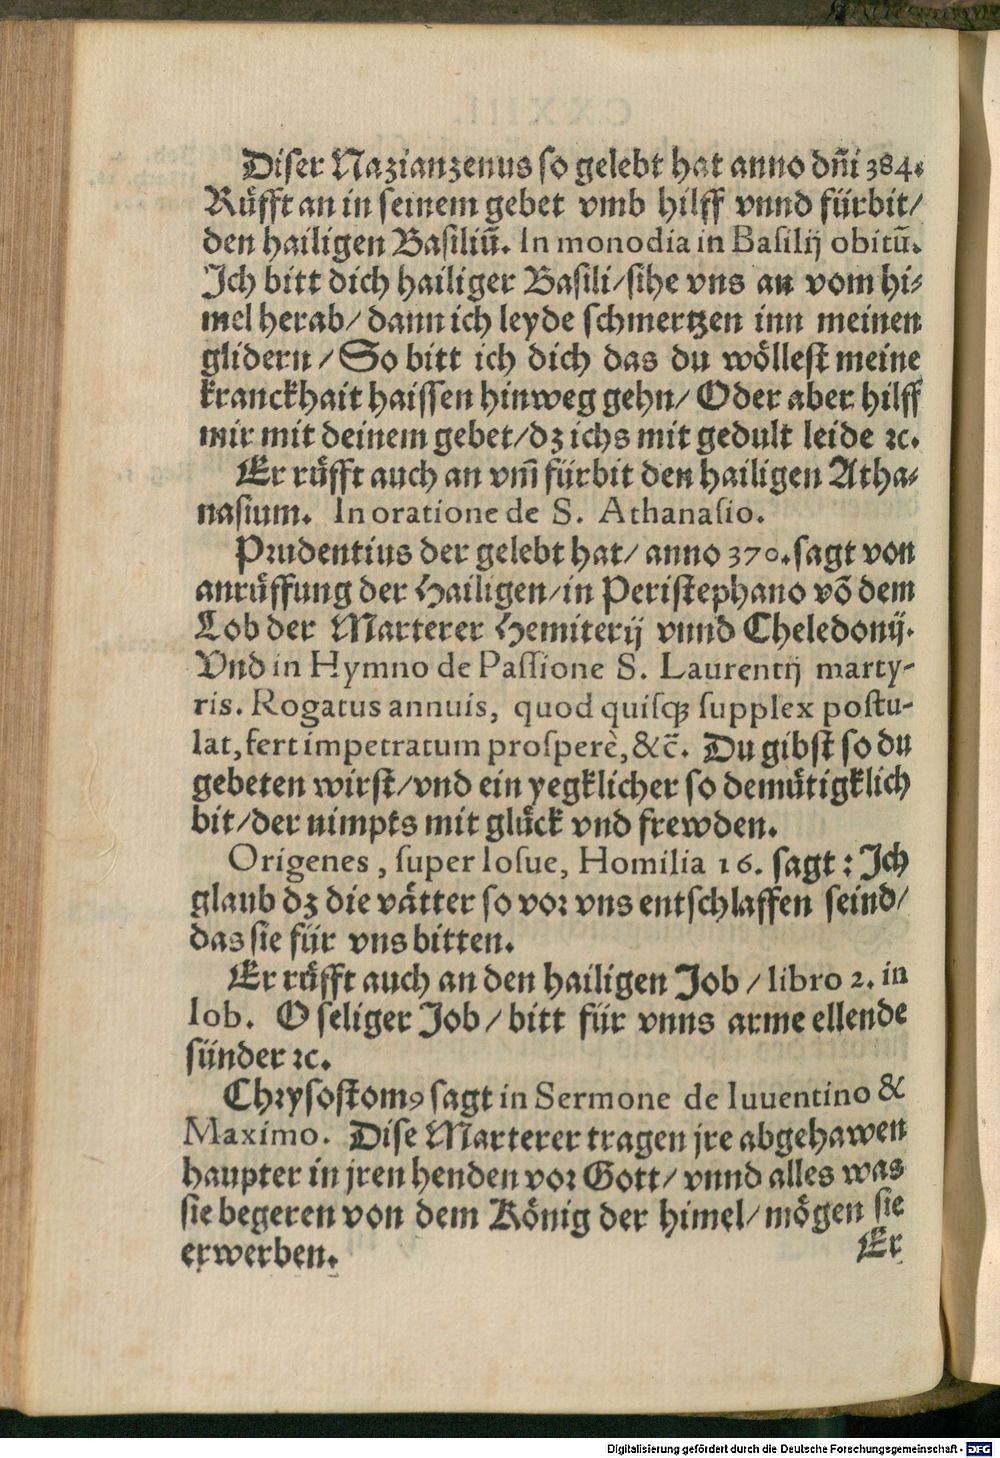 Diser Nazianzenus so gelebt hat anno dn̄i 384.
Rüfft an in seinem gebet vmb hilff vnnd fürbit/
den hailigen Basiliū. In monodia in Basilij obitū.
Ich bitt dich hailiger Basili/sihe vns an vom hi-
mel herab/ dann ich leyde schmertzen inn meinen
glidern/ So bitt ich dich das du wöllest meine
kranckhait haissen hinweg gehn/ Oder aber hilff
mir mit deinem gebet/dz ichs mit gedult leide ꝛc.
Er rüfft auch an vm̄ fürbit den hailigen Atha-
nasium. In oratione de S. Athanasio.
Prudentius der gelebt hat/ anno 370. sagt von
anrüffung der Hailigen/in Peristephano vō dem
Lob der Marterer Hemiterij vnnd Cheledonij.
Vnd in Hymno de Passione S. Laurentij marty-
ris. Rogatus annuis, quod quisqꝫ supplex postu-
lat, fert impetratum prosperè, &c̄. Du gibst so du
gebeten wirst/vnd ein yegklicher so demütigklich
bit/der nimpts mit glück vnd frewden.
Origenes, super Iosue, Homilia 16. sagt: Ich
glaub dz die vätter so vor vns entschlaffen seind/
das sie für vns bitten.
Er rüfft auch an den hailigen Job / libro 2. in
Iob. O seliger Job/ bitt für vnns arme ellende
sünder ꝛc.
Chrysostomꝰ sagt in Sermone de Iuuentino &
Maximo. Dise Marterer tragen jre abgehawen
haupter in jren henden vor Gott/ vnnd alles was
sie begeren von dem König der himel/mögen sie
erwerben.
Er
Digitalisierung gefördert durch die Deutsche Forschungsgemeinschaft - DFG